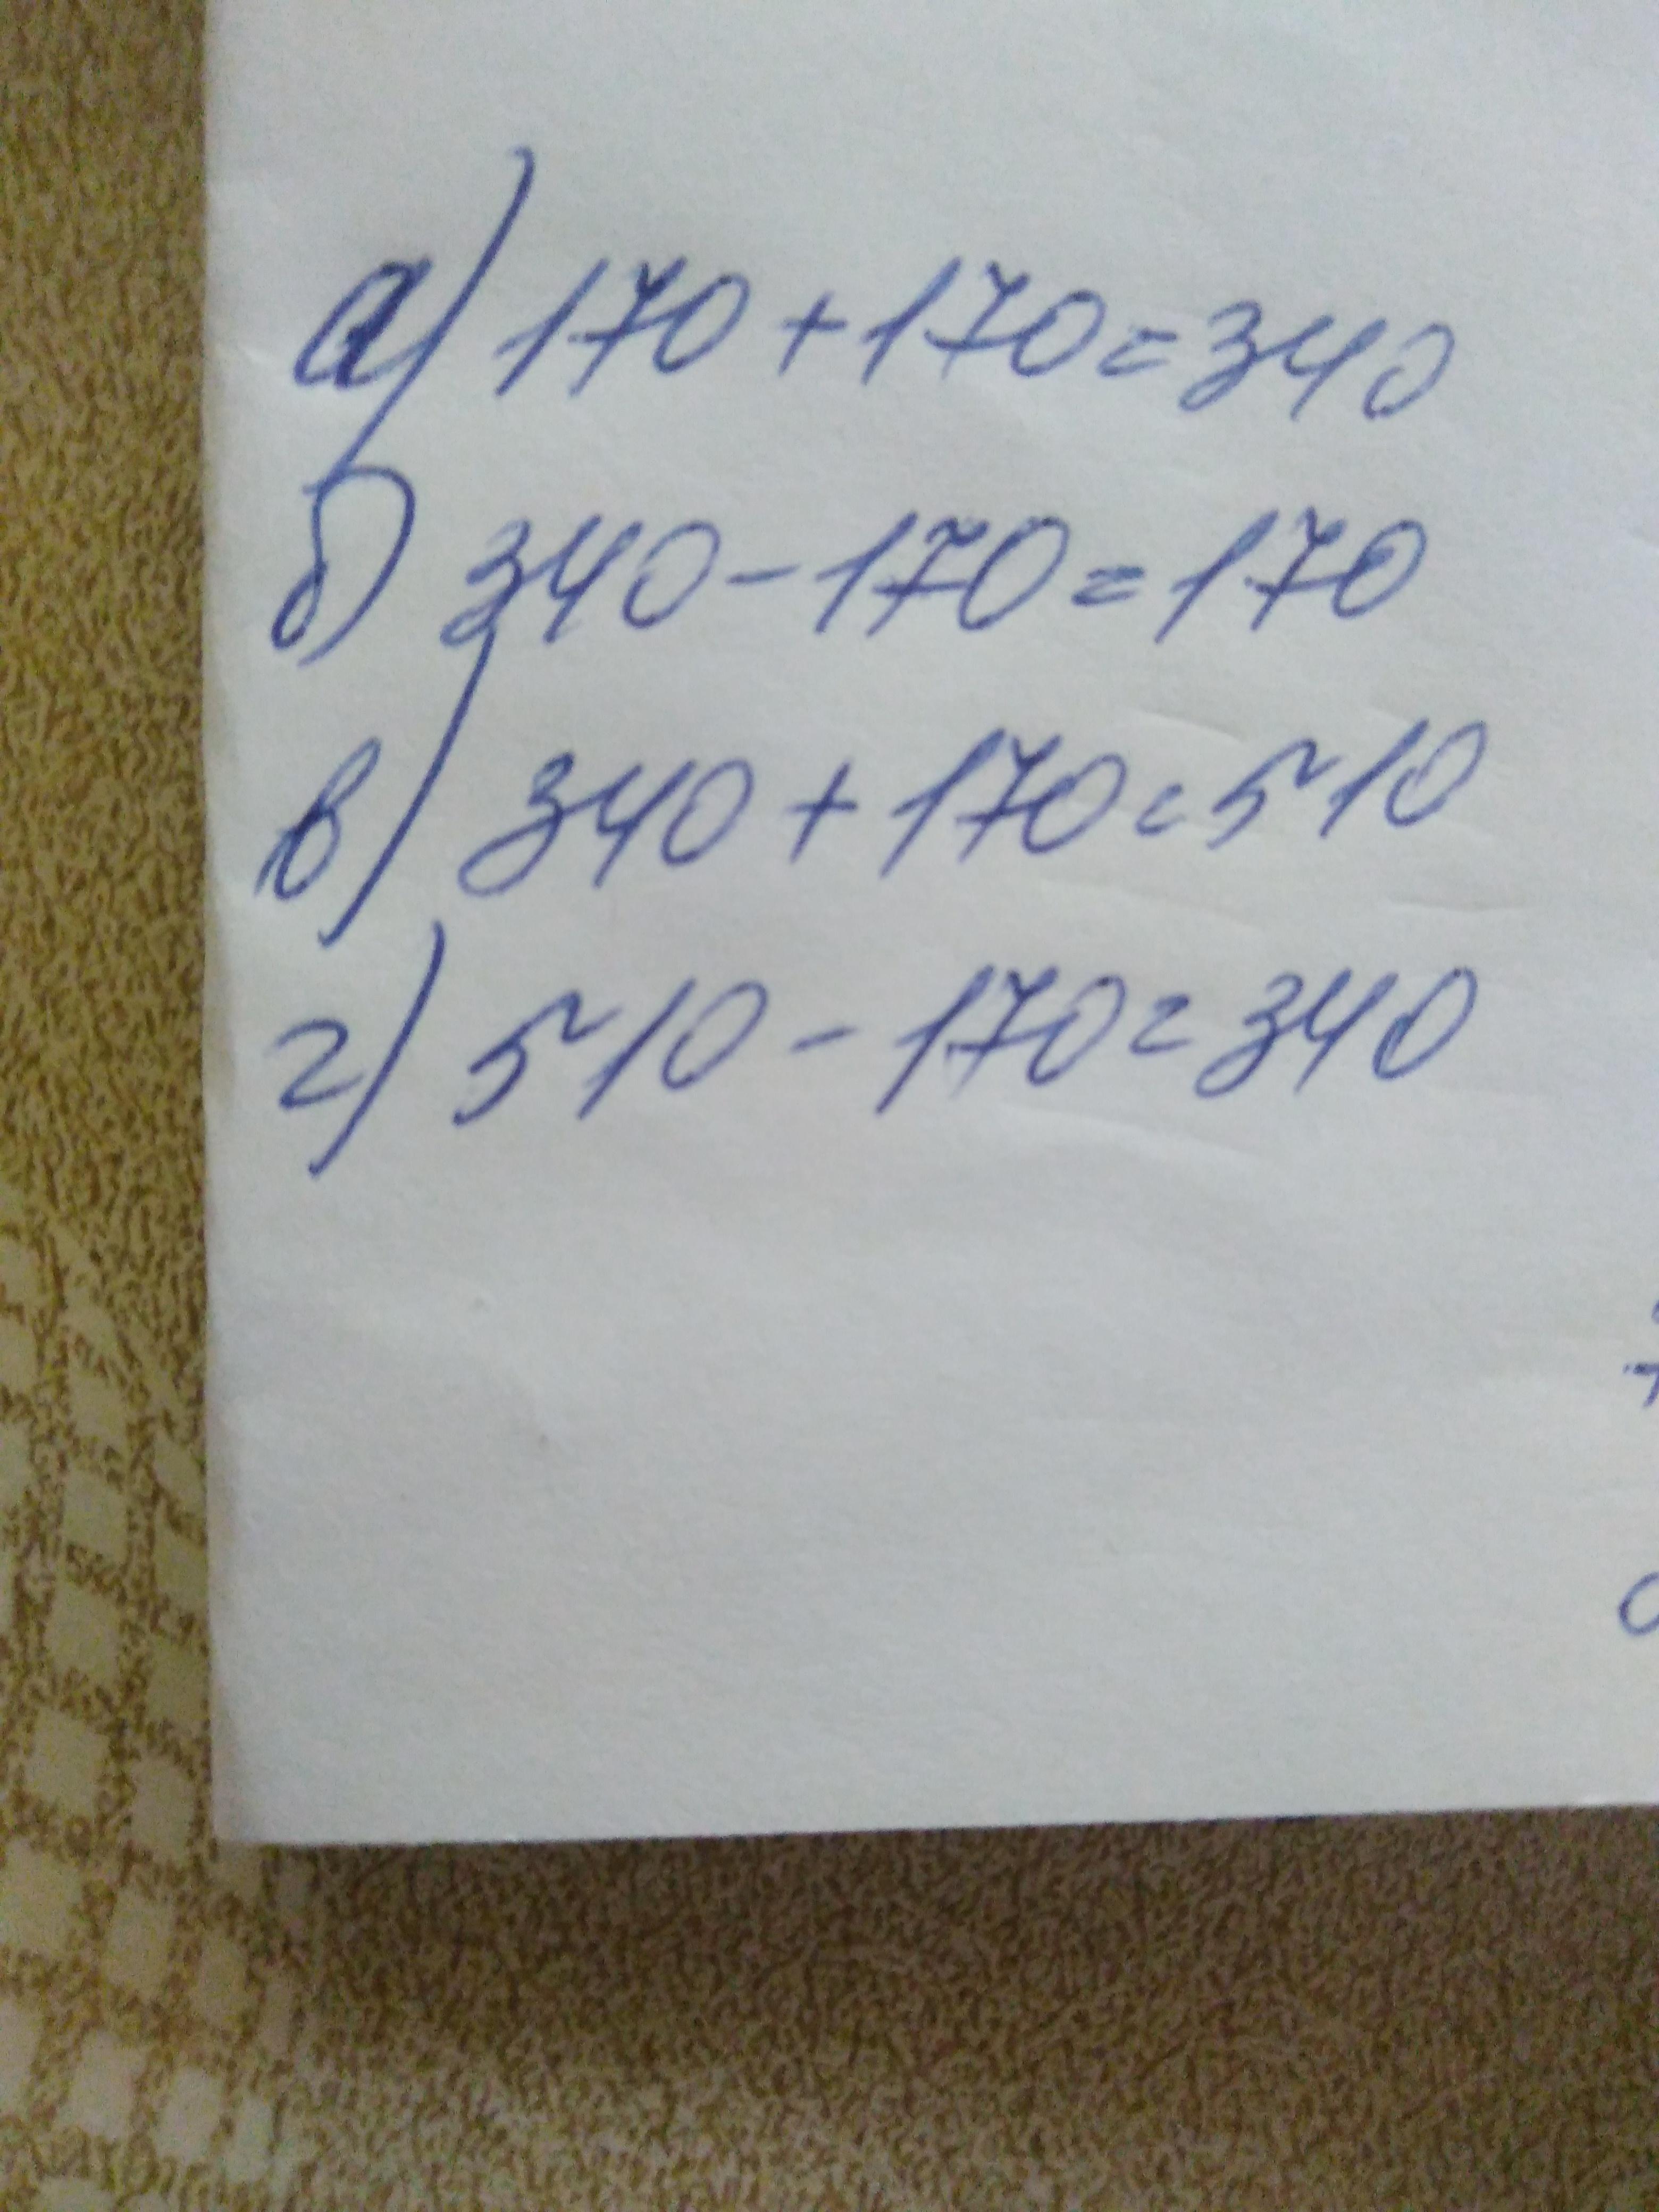 а) 170 + 170 = 340
б) 340 - 170 = 170
в) 340 + 170 = 510
г) 510 - 170 = 340